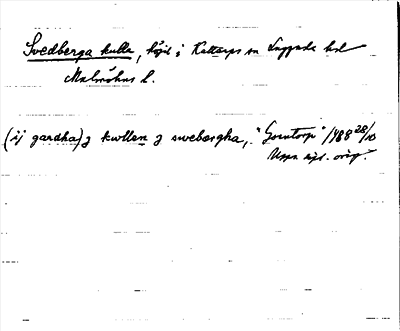 Svedberga kulle, höjd i Kattarps sn Luggude hd
Malmöhus l.
(ij gardha) ʒ kwllen ʒ swebergha, "Gorutorp" 1488 28/10
Uppn. dipl. orig.